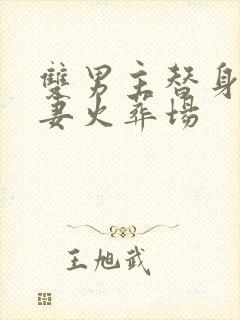 双男主替身
妻火葬场
王旭武